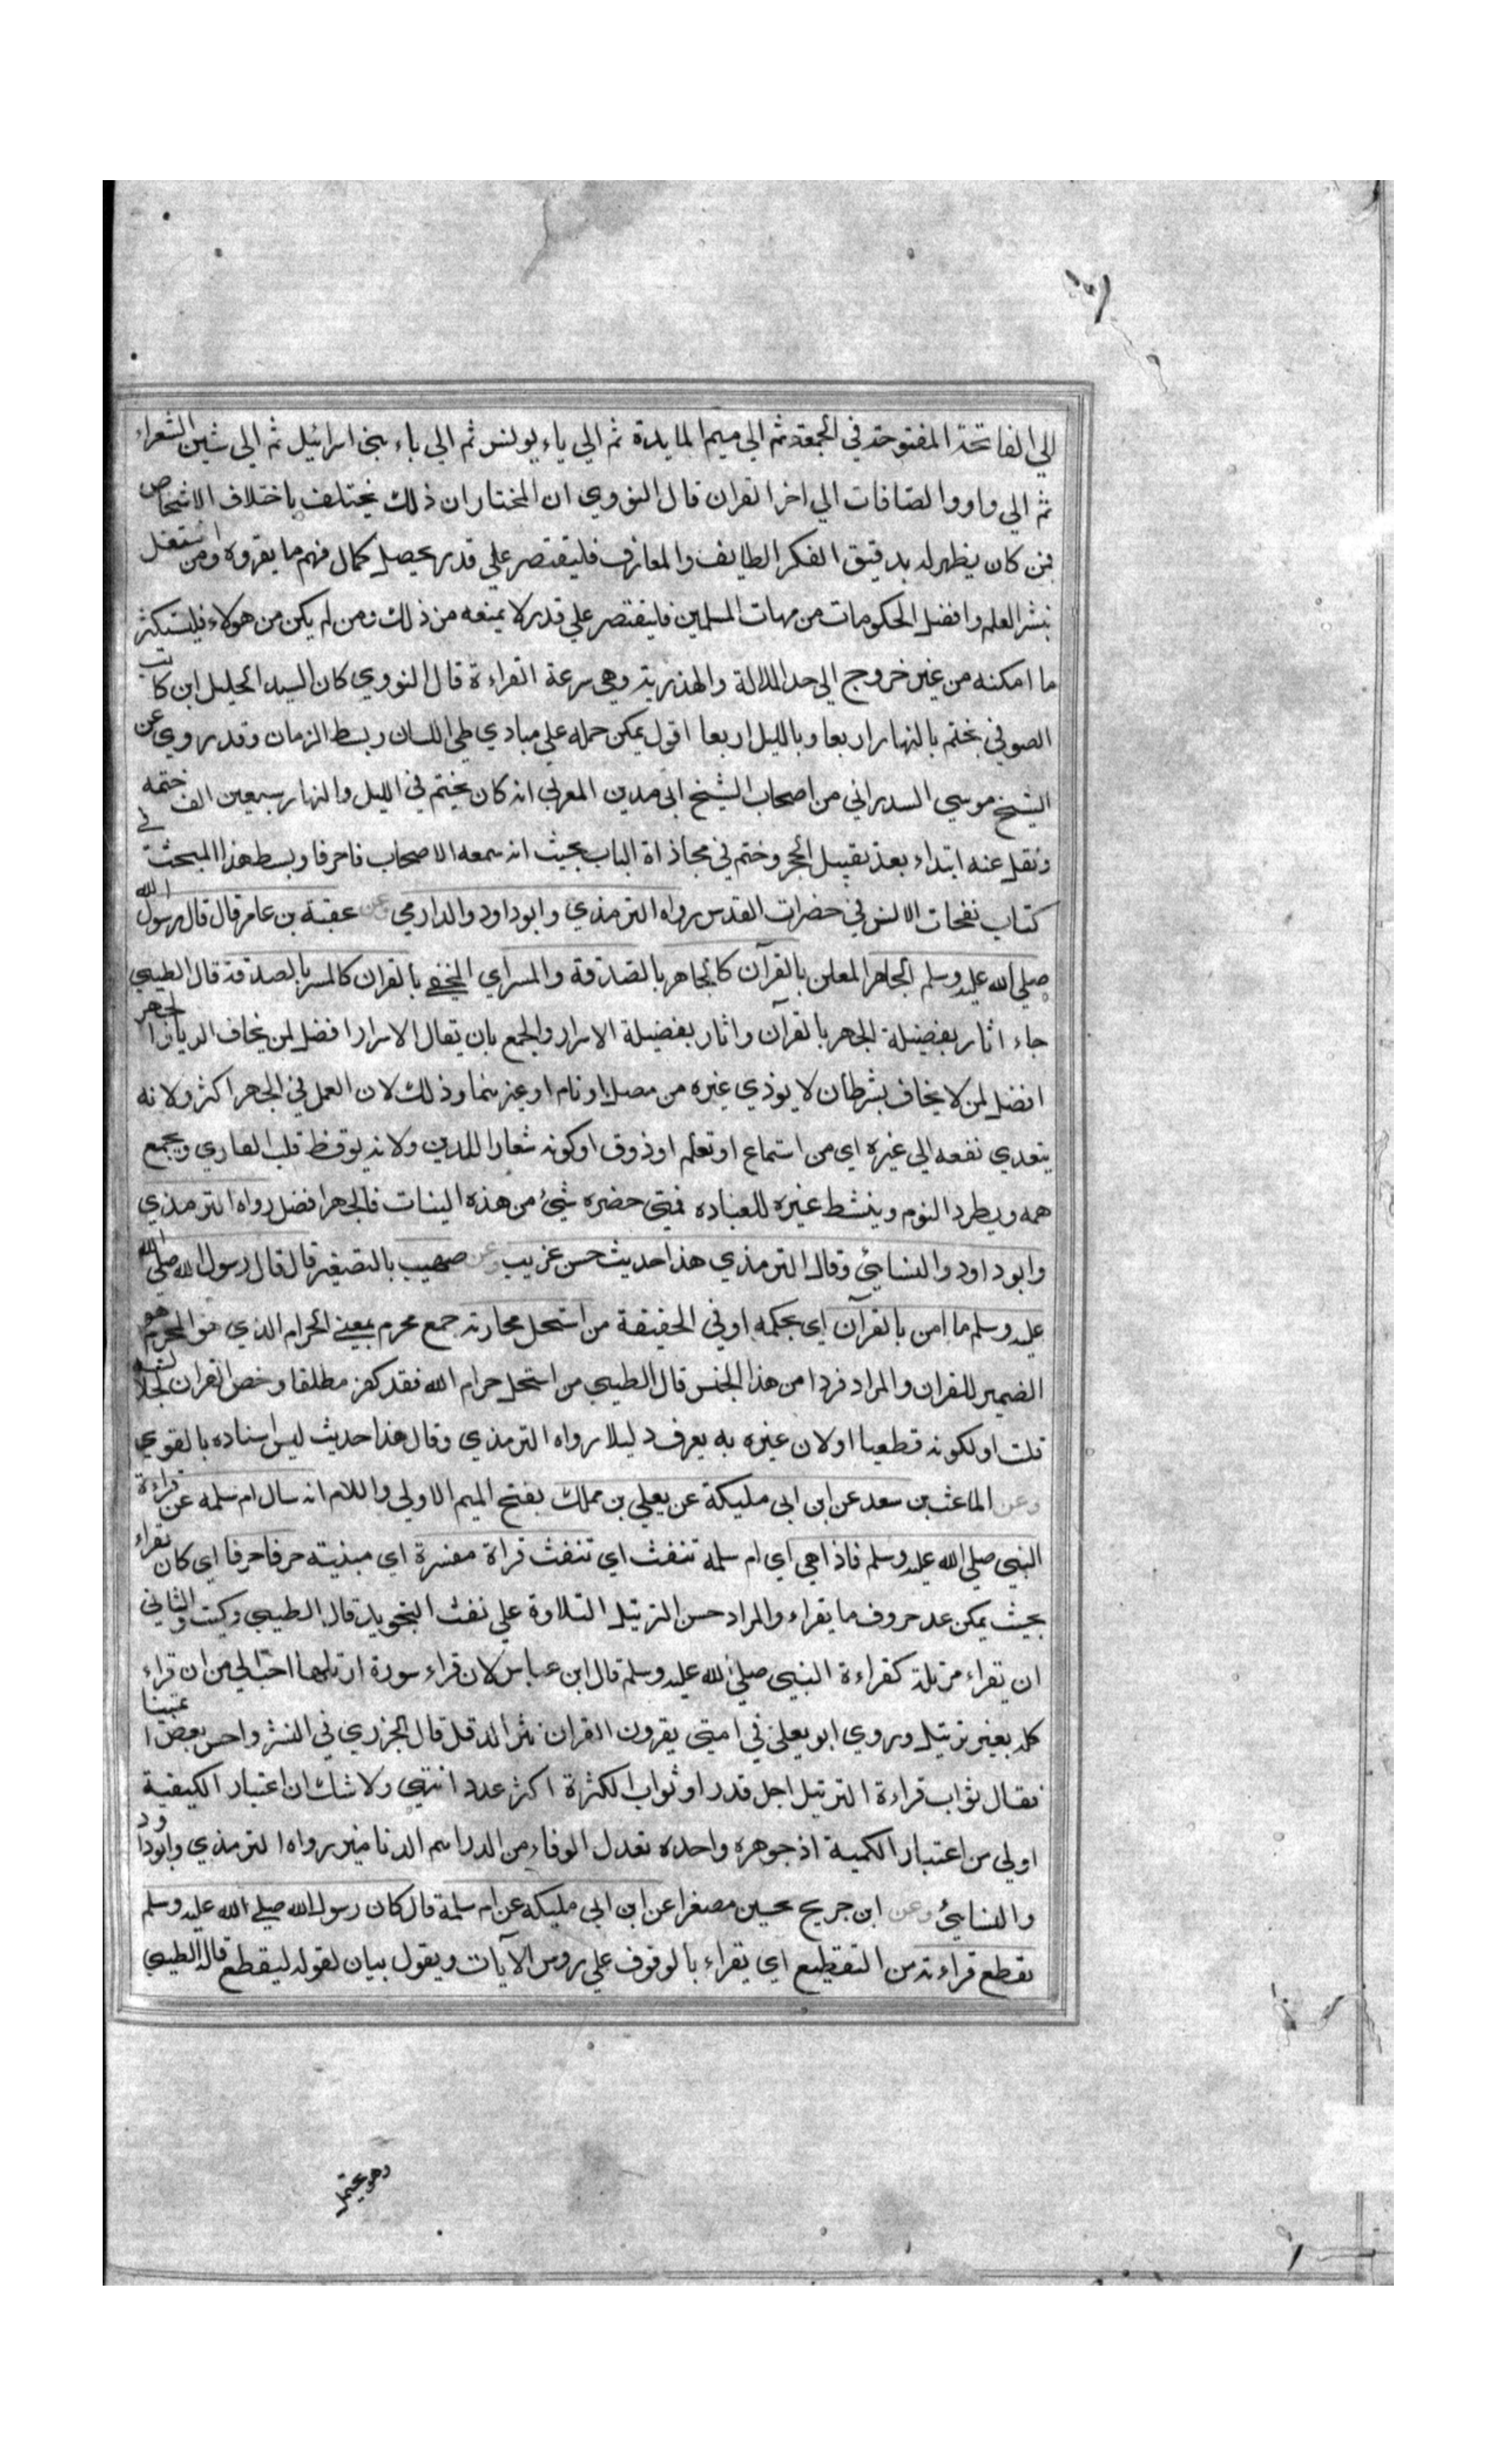 الي الفاتحة المفتوحة في الجمعة ثم الي ميم المايدة ثم الي ياء يونس ثم الي باء بني اسرائيل ثم الي شين الشعراء
ثم الي واو والصافات الي اخر القران قال النووي ان المختار ان ذلك يختلف باختلاف الاشخاص
فمن كان يظهر له بدقيق الفكر الطايف والمعارف فليقتصر علي قدر يحصل كمال فهم ما يقروه ومن اشتغل
بنشر العلم وافضل الحكومات من مهات المسلمين فليقتصر علي قدر لا يمنعه من ذلك ومن لم يكن من هولاء فليستكثر
ما امكنه من غير خروج الي حد الملالة والهذرية وهي سرعة القراءة قال النووي كان السيد الجليل ابن كاتب
الصوفي يختم بالنهار اربعا وبالليل اربعا اقول يمكن حمله علي مبادي طي اللسان وبسط الزمان وقد روي عن
الشيخ موسي السدراني من اصحاب الشيخ ابي مدين المغربي انه كان يختم في الليل والنهار سبعين الف ختمه
ونقل عنه ابتداء بعد تقبيل الحجر وختم في محاذاة الباب بحيث انه سمعه الاصحاب فاحرفا وبسط هذا المبحث في
كتاب نفحات الانس في حضرات القدس رواه الترمذي وابو داود والدارمي عن عقبة بن عامر قال قال رسول الله
صلي الله عليه وسلم الجاهر المعلن بالقرآن كالجاهر بالصدقة والمسر اي المخفي بالقران كالمسر بالصدقة قال الطيبي
جاء اثار بفضيلة الجهر بالقرآن واثار بفضيلة الاسرار والجمع بان يقال الاسرار افضل لمن يخاف الرياء والجهر
افضل لمن لا يخاف بشرط ان لا يوذي غيره من مصل او نام او غيرهما وذلك لان العمل في الجهر اكثر ولانه
يتعدي نفعه الي غيره اي من استماع او تعلم او ذوق او كونه شعارا للدين ولانه يوقظ قلب القاري ويجمع
همه ويطرد النوم وينشط غيره للعباده فمتي حضره شيئ من هذه النيات فالجهر افضل رواه الترمذي
وابو داود والنسائي وقال الترمذي هذا حديث حسن غريب وعن صهيب بالتصغير قال قال رسول الله صلي الله
عليه وسلم ما امن بالقرآن اي بحكمه او في الحقيقة من استحل محارمه جمع محرم بمعني الحرام الذي هو المحرم
الضمير للقران والمراد فردا من هذا الجنس قال الطيبي من استحل حرام الله فقد كفر مطلقا وخص القران لجلالته
قلت او لكونه قطعيا اولان غيره به يعرف دليلا رواه الترمذي وقال هذا حديث ليس اسناده بالقوي
وعن الماعث بن سعد عن ابن ابي مليكة عن يعلي بن مملك بفتح الميم الاولي واللام انه سال ام سلمه عن قراءة
النبي صلي الله عليه وسلم فاذا هي اي ام سلمه تنفث اي تنفث قراة مفسرة اي مبنية حرفا حرفا اي كان يقراء
بحيث يمكن عد حروف ما يقراء والمراد حسن الترتيل التلاوة علي نفث التجويد قال الطيبي وكيت والثاني
ان يقراء مرتلة كقراءة النبي صلي الله عليه وسلم قال ابن عباس لان قراء سورة ارتلها احب الي من ان قراء
كله بغير ترتيل وروي ابو يعلي في امتي يقرون القران نثر الدقل قال الجزري في النشر واحسن بعض ائمتنا
فقال ثواب قراءة الترتيل اجل قدرا وثواب الكثرة اكثر عددا انتهي ولا شك ان اعتبار الكيفية
اولي من اعتبار الكمية اذ جوهره واحده تعدل الوفاء من الدراهم الدنانير رواه الترمذي وابو داود
والنسائي وعن ابن جريج بجيمين مصغرا عن ابن ابي مليكه عن ام سلمة قال كان رسول الله صلي الله عليه وسلم
يقطع قراءته من التقطيع اي يقراء بالوقوف علي روس الآيات ويقول بيان لقوله ليقطع قال الطيبي
وهو يحتمل